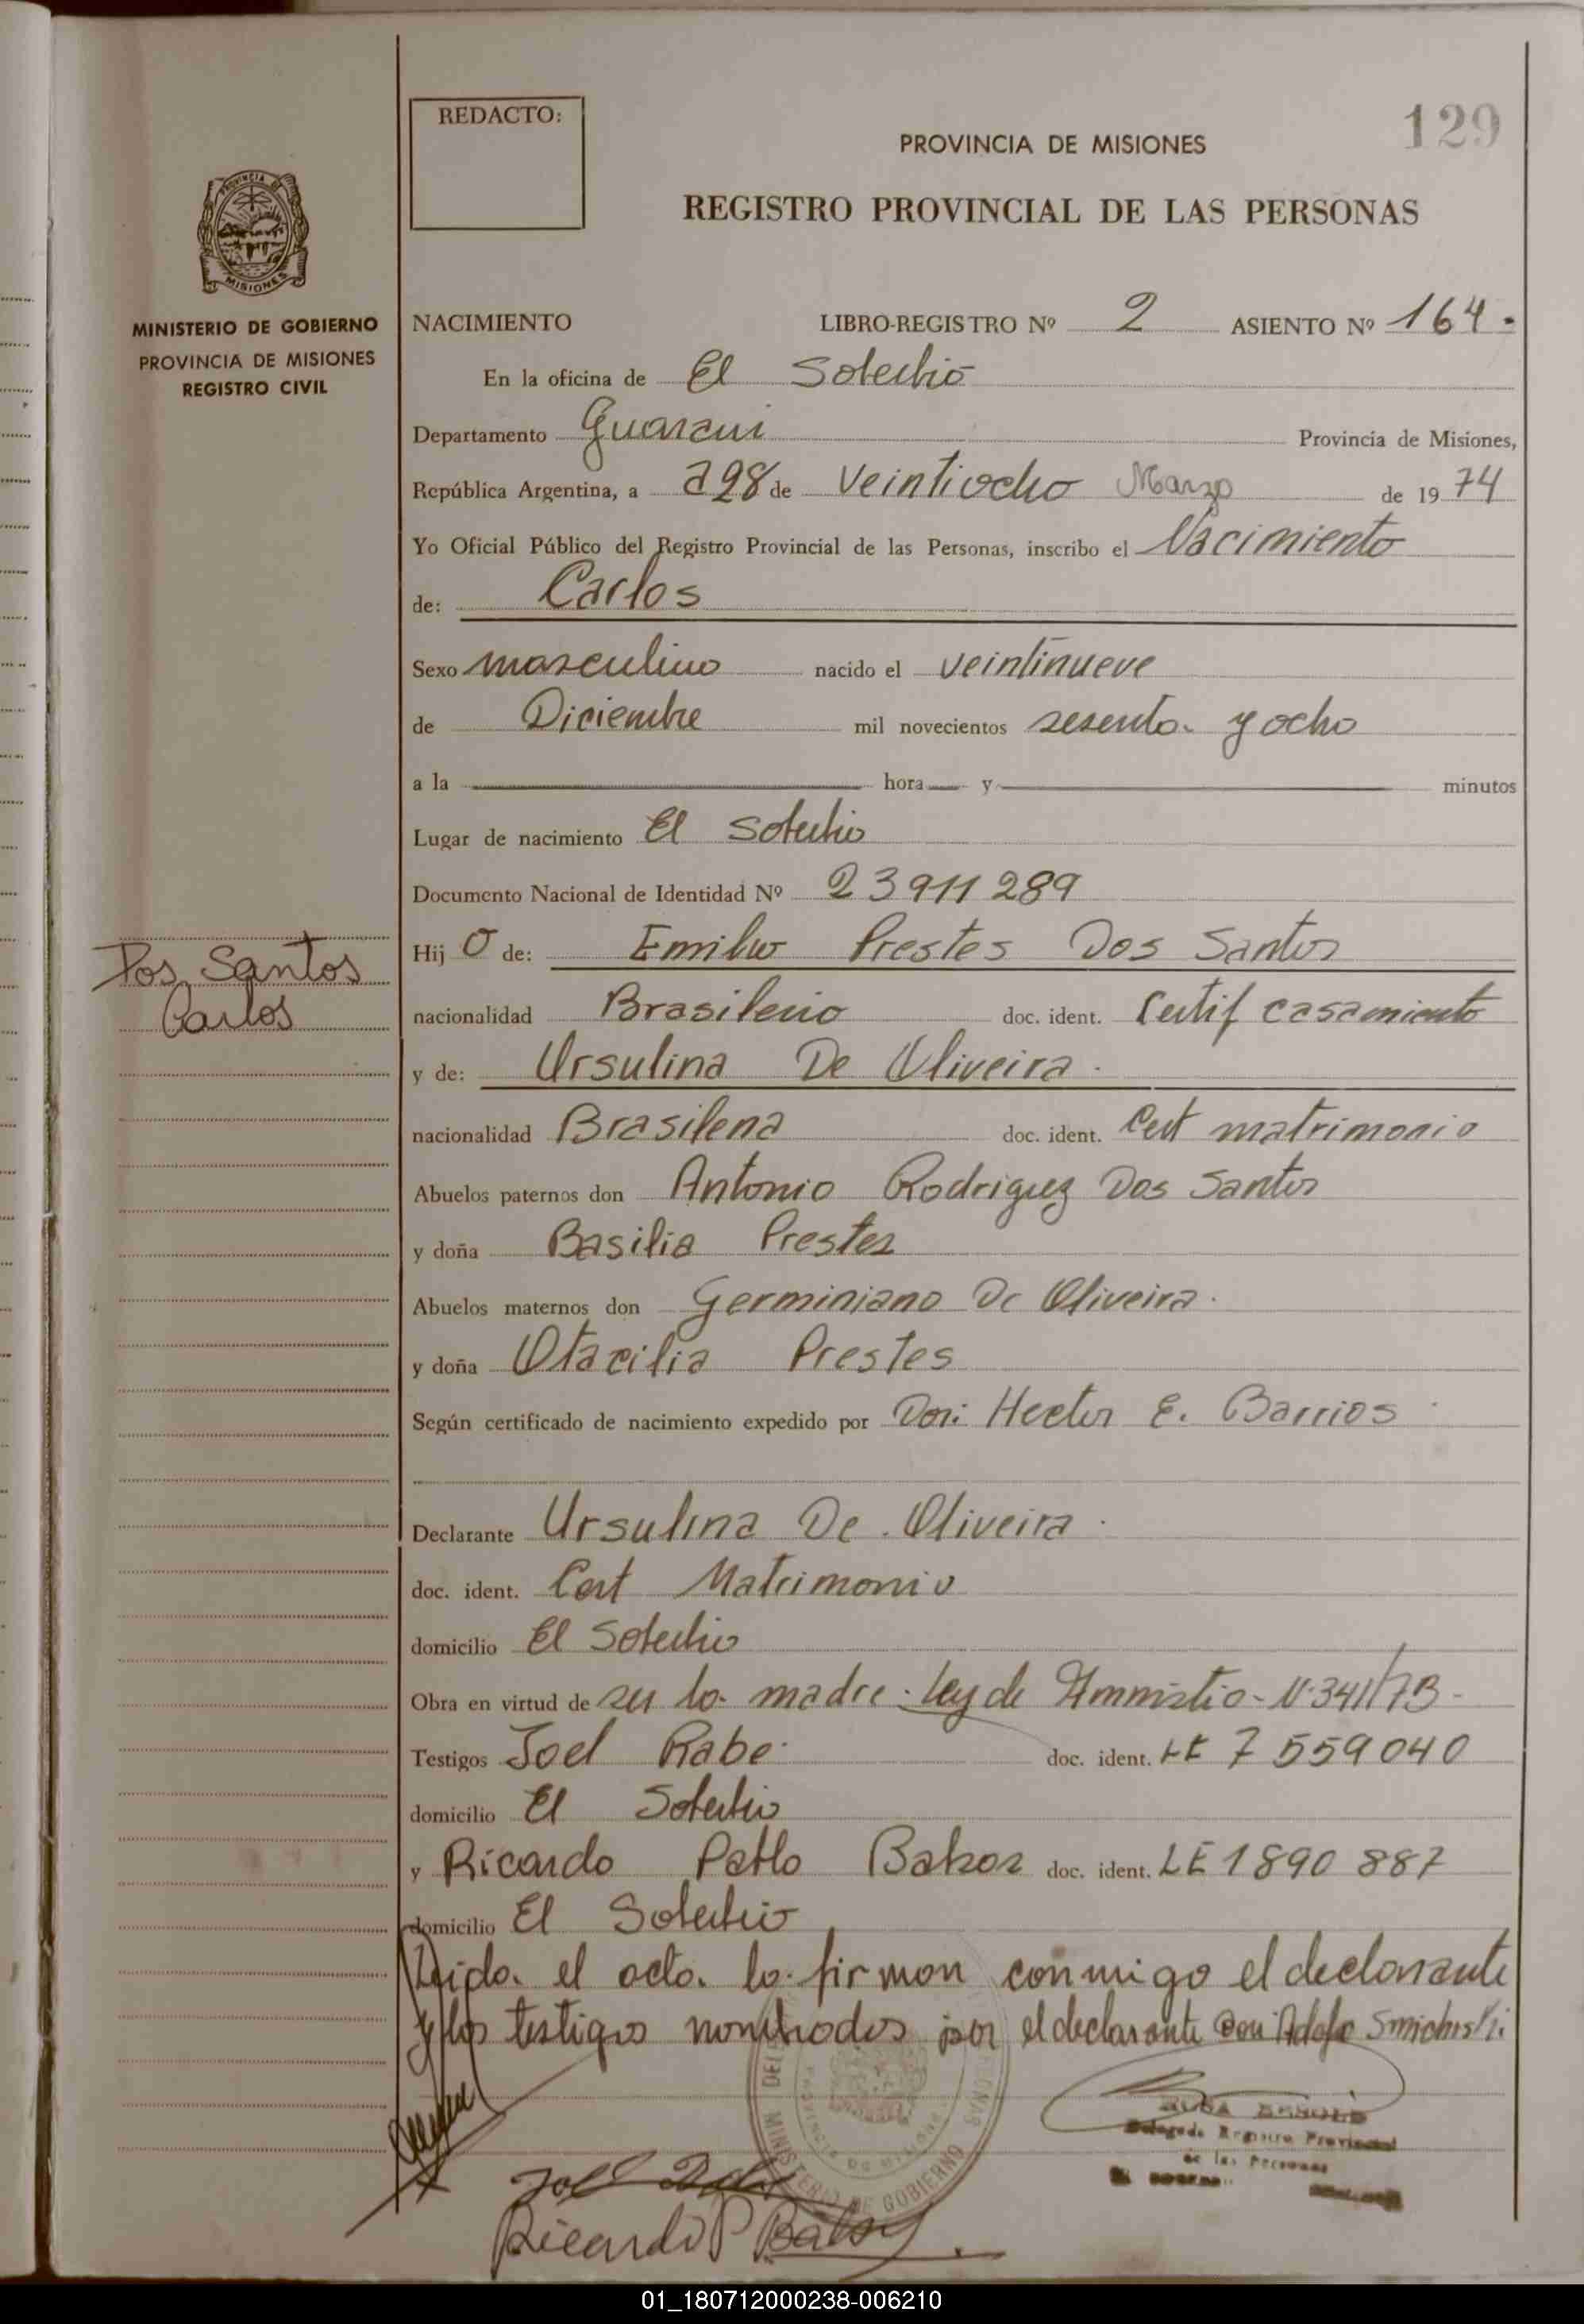 REDACTO:
129
PROVINCIA DE MISIONES
REGISTRO PROVINCIAL DE LAS PERSONAS
PROVINCIA DE
MISIONES
MINISTERIO DE GOBIERNO
PROVINCIA DE MISIONES
REGISTRO CIVIL
NACIMIENTO LIBRO-REGISTRO Nº 2 ASIENTO Nº 164.
En la oficina de El Soberbio
Departamento Guarani Provincia de Misiones,
República Argentina, a 298 de Veintiocho Marzo de 1974
Yo Oficial Público del Registro Provincial de las Personas, inscribo el Nacimiento
de: Carlos
Sexo masculino nacido el veintinueve
de Diciembre mil novecientos sesenta y ocho
a la hora y minutos
Lugar de nacimiento El Soberbio
Documento Nacional de Identidad Nº 23911289
Dos Santos
Carlos
Hij o de: Emilio Prestes Dos Santos
nacionalidad Brasileño doc. ident. Certif casamiento
y de: Ursulina De Oliveira.
nacionalidad Brasilena doc. ident. Cert matrimonio
Abuelos paternos don Antonio Rodriguez Dos Santos
y doña Basilia Prestes
Abuelos maternos don Germiniano De Oliveira.
y doña Otacilia Prestes
Según certificado de nacimiento expedido por Don: Hector E. Barrios
Declarante Ursulina De Oliveira.
doc. ident. Cert Matrimonio
domicilio El Soberbio
Obra en virtud de ser la madre. Ley de Amnistia - N·341/73-
Testigos Joel Rabe doc. ident. LE 7559040
domicilio El Soberbio
y Ricardo Pablo doc. ident. LE 1890887
domicilio El Soberbio
Leida el acta la firman conmigo el declarante
y los testigos nombrados por el declarante Don Adolfo
MINISTERIO DE GOBIERNO
PROVINCIA DE MISIONES
ROSA
Delegada Registro Provincial
de las Personas
Joel
Ricardo P
01_180712000238-006210